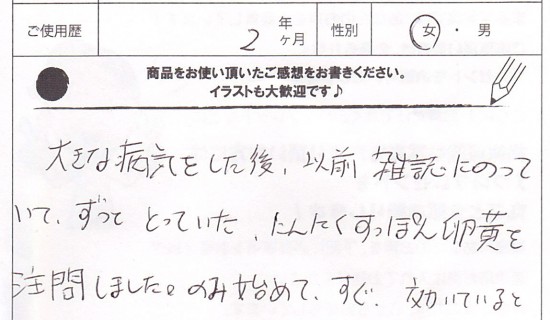 ご使用歴 2 年 ヶ月 性別 女・男
商品をお使い頂いたご感想をお書きください。
イラストも大歓迎です♪
大きな病気をした後、以前雑誌にのって
いて、ずっと とっていた、にんにくすっぽん卵黄を
注問しました。のみ始めて、すぐ、効いていると